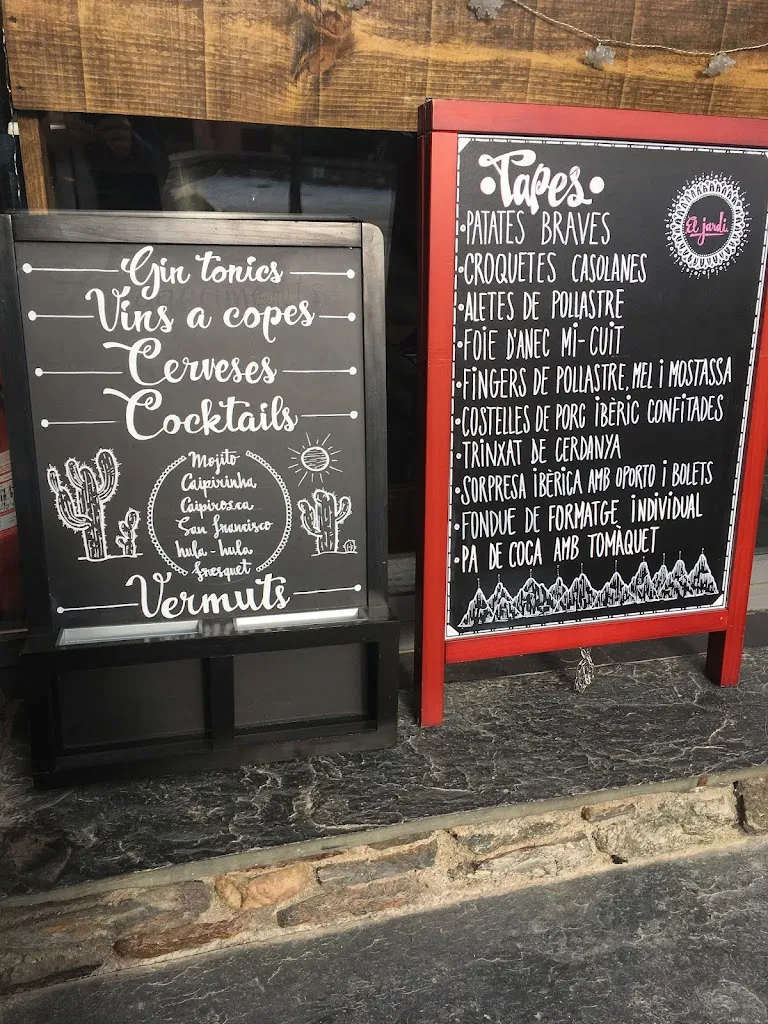 Gin tonics
Vins a copes
Cerveses
Cocktails
Mojito
Caipirinha
Caipiroska
San Francisco
hula-hula
fresquet
Vermuts
•Tapes•
El jardi
•PATATES BRAVES
•CROQUETES CASOLANES
•ALETES DE POLLASTRE
•FOIE D'ANEC MI-CUIT
•FINGERS DE POLLASTRE, MEL I MOSTASSA
•COSTELLES DE PORC IBÈRIC CONFITADES
•TRINXAT DE CERDANYA
•SORPRESA IBÈRICA AMB OPORTO I BOLETS
•FONDUE DE FORMATGE INDIVIDUAL
•PA DE COCA AMB TOMÀQUET